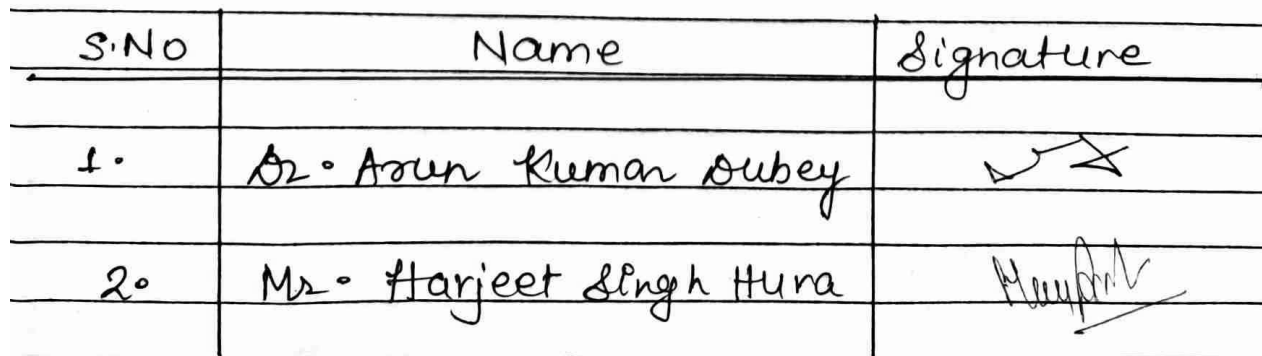 S.No Name Signature
1. Dr. Arun Kumar Dubey
2. Mr. Harjeet Singh Hura